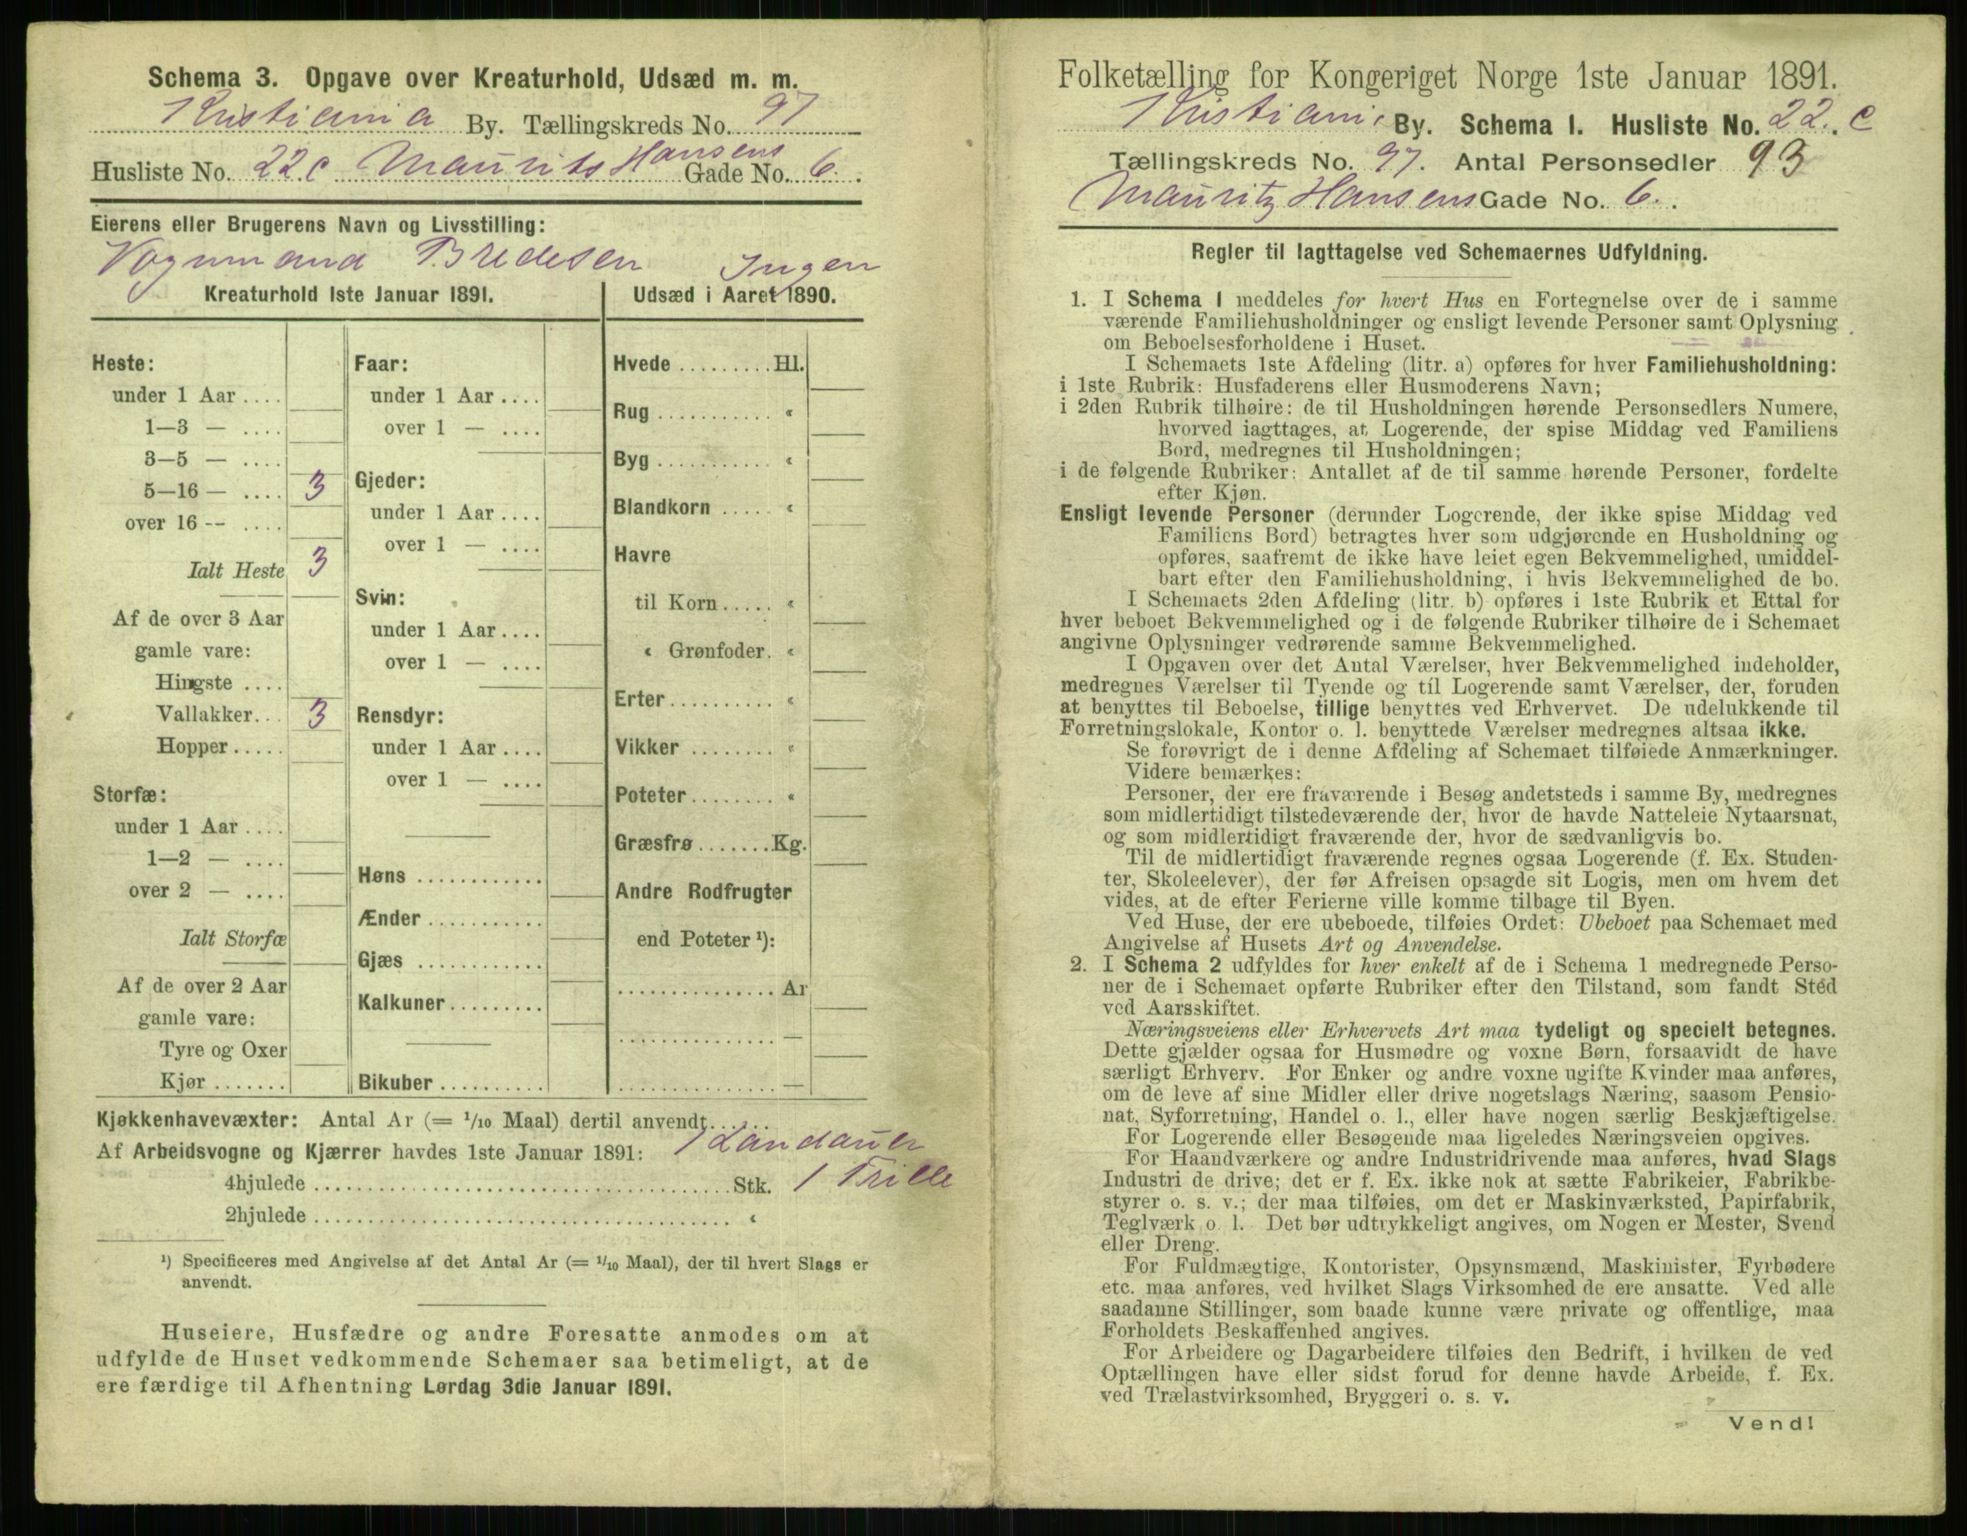 Schema 3. Opgave over Kreaturhold, Udsæd m. m.
Kristiania By. Tællingskreds No. 97
Husliste No. 22 c Maurits Hansens Gade No. 6.
Eierens eller Brugerens Navn og Livsstilling:
Vognmand Bredesen Ingen
Kreaturhold 1ste Januar 1891.
Heste:
under 1 Aar ....
1—3 — ....
3—5 — ....
5—16 — .... 3
over 16 -- ....
Ialt Heste 3
Af de over 3 Aar
gamle vare:
Hingste ....
Vallakker... 3
Hopper .....
Storfæ:
under 1 Aar ....
1—2 — ....
over 2 — ....
Ialt Storfæ
Af de over 2 Aar
gamle vare:
Tyre og Oxer
Kjør .......
Faar:
under 1 Aar ....
over 1 — ....
Gjeder:
under 1 Aar ....
over 1 — ....
Svin:
under 1 Aar ....
over 1 — ....
Rensdyr:
under 1 Aar ....
over 1 — ....
Høns ............
Ænder ...........
Gjæs ............
Kalkuner .........
Bikuber ..........
Udsæd i Aaret 1890.
Hvede ......... Hl.
Rug ........... «
Byg ........... «
Blandkorn ..... «
Havre
til Korn ..... «
« Grønfoder. «
Erter ......... «
Vikker ........ «
Poteter ........ «
Græsfrø ....... Kg.
Andre Rodfrugter
end Poteter ¹):
............... Ar
............... —
............... —
Kjøkkenhavevæxter: Antal Ar (= 1/10 Maal) dertil anvendt ......
Af Arbeidsvogne og Kjærrer havdes 1ste Januar 1891: 1 Landauer
4hjulede ........................................ Stk. 1 Trille
2hjulede ........................................ «
¹) Specificeres med Angivelse af det Antal Ar (= 1/10 Maal), der til hvert Slags er
anvendt.
Huseiere, Husfædre og andre Foresatte anmodes om at
udfylde de Huset vedkommende Schemaer saa betimeligt, at de
ere færdige til Afhentning Lørdag 3die Januar 1891.
Folketælling for Kongeriget Norge 1ste Januar 1891.
Kristiania By. Schema 1. Husliste No. 22. c
Tællingskreds No. 97. Antal Personsedler 93
Mauritz Hansens Gade No. 6.
Regler til Iagttagelse ved Schemaernes Udfyldning.
1. I Schema 1 meddeles for hvert Hus en Fortegnelse over de i samme
værende Familiehusholdninger og ensligt levende Personer samt Oplysning
om Beboelsesforholdene i Huset.
I Schemaets 1ste Afdeling (litr. a) opføres for hver Familiehusholdning:
i 1ste Rubrik: Husfaderens eller Husmoderens Navn;
i 2den Rubrik tilhøire: de til Husholdningen hørende Personsedlers Numere,
hvorved iagttages, at Logerende, der spise Middag ved Familiens
Bord, medregnes til Husholdningen;
i de følgende Rubriker: Antallet af de til samme hørende Personer, fordelte
efter Kjøn.
Ensligt levende Personer (derunder Logerende, der ikke spise Middag ved
Familiens Bord) betragtes hver som udgjørende en Husholdning og
opføres, saafremt de ikke have leiet egen Bekvemmelighed, umiddel-
bart efter den Familiehusholdning, i hvis Bekvemmelighed de bo.
I Schemaets 2den Afdeling (litr. b) opføres i 1ste Rubrik et Ettal for
hver beboet Bekvemmelighed og i de følgende Rubriker tilhøire de i Schemaet
angivne Oplysninger vedrørende samme Bekvemmelighed.
I Opgaven over det Antal Værelser, hver Bekvemmelighed indeholder,
medregnes Værelser til Tyende og til Logerende samt Værelser, der, foruden
at benyttes til Beboelse, tillige benyttes ved Erhvervet. De udelukkende til
Forretningslokale, Kontor o. l. benyttede Værelser medregnes altsaa ikke.
Se forøvrigt de i denne Afdeling af Schemaet tilføiede Anmærkninger.
Videre bemærkes:
Personer, der ere fraværende i Besøg andetsteds i samme By, medregnes
som midlertidigt tilstedeværende der, hvor de havde Natteleie Nytaarsnat,
og som midlertidigt fraværende der, hvor de sædvanligvis bo.
Til de midlertidigt fraværende regnes ogsaa Logerende (f. Ex. Studen-
ter, Skoleelever), der før Afreisen opsagde sit Logis, men om hvem det
vides, at de efter Ferierne ville komme tilbage til Byen.
Ved Huse, der ere ubeboede, tilføies Ordet: Ubeboet paa Schemaet med
Angivelse af Husets Art og Anvendelse.
2. I Schema 2 udfyldes for hver enkelt af de i Schema 1 medregnede Perso-
ner de i Schemaet opførte Rubriker efter den Tilstand, som fandt Sted
ved Aarsskiftet.
Næringsveiens eller Erhvervets Art maa tydeligt og specielt betegnes.
Dette gjælder ogsaa for Husmødre og voxne Børn, forsaavidt de have
særligt Erhverv. For Enker og andre voxne ugifte Kvinder maa anføres,
om de leve af sine Midler eller drive nogetslags Næring, saasom Pensio-
nat, Syforretning, Handel o. l., eller have nogen særlig Beskjæftigelse.
For Logerende eller Besøgende maa ligeledes Næringsveien opgives.
For Haandværkere og andre Industridrivende maa anføres, hvad Slags
Industri de drive; det er f. Ex. ikke nok at sætte Fabrikeier, Fabrikbe-
styrer o. s. v.; der maa tilføies, om det er Maskinværksted, Papirfabrik,
Teglværk o. l. Det bør udtrykkeligt angives, om Nogen er Mester, Svend
eller Dreng.
For Fuldmægtige, Kontorister, Opsynsmænd, Maskinister, Fyrbødere
etc. maa anføres, ved hvilket Slags Virksomhed de ere ansatte. Ved alle
saadanne Stillinger, som baade kunne være private og offentlige, maa
Forholdets Beskaffenhed angives.
For Arbeidere og Dagarbeidere tilføies den Bedrift, i hvilken de ved
Optællingen have eller sidst forud for denne havde Arbeide, f. Ex.
ved Trælastvirksomhed, Bryggeri o. s. v.
Vend!